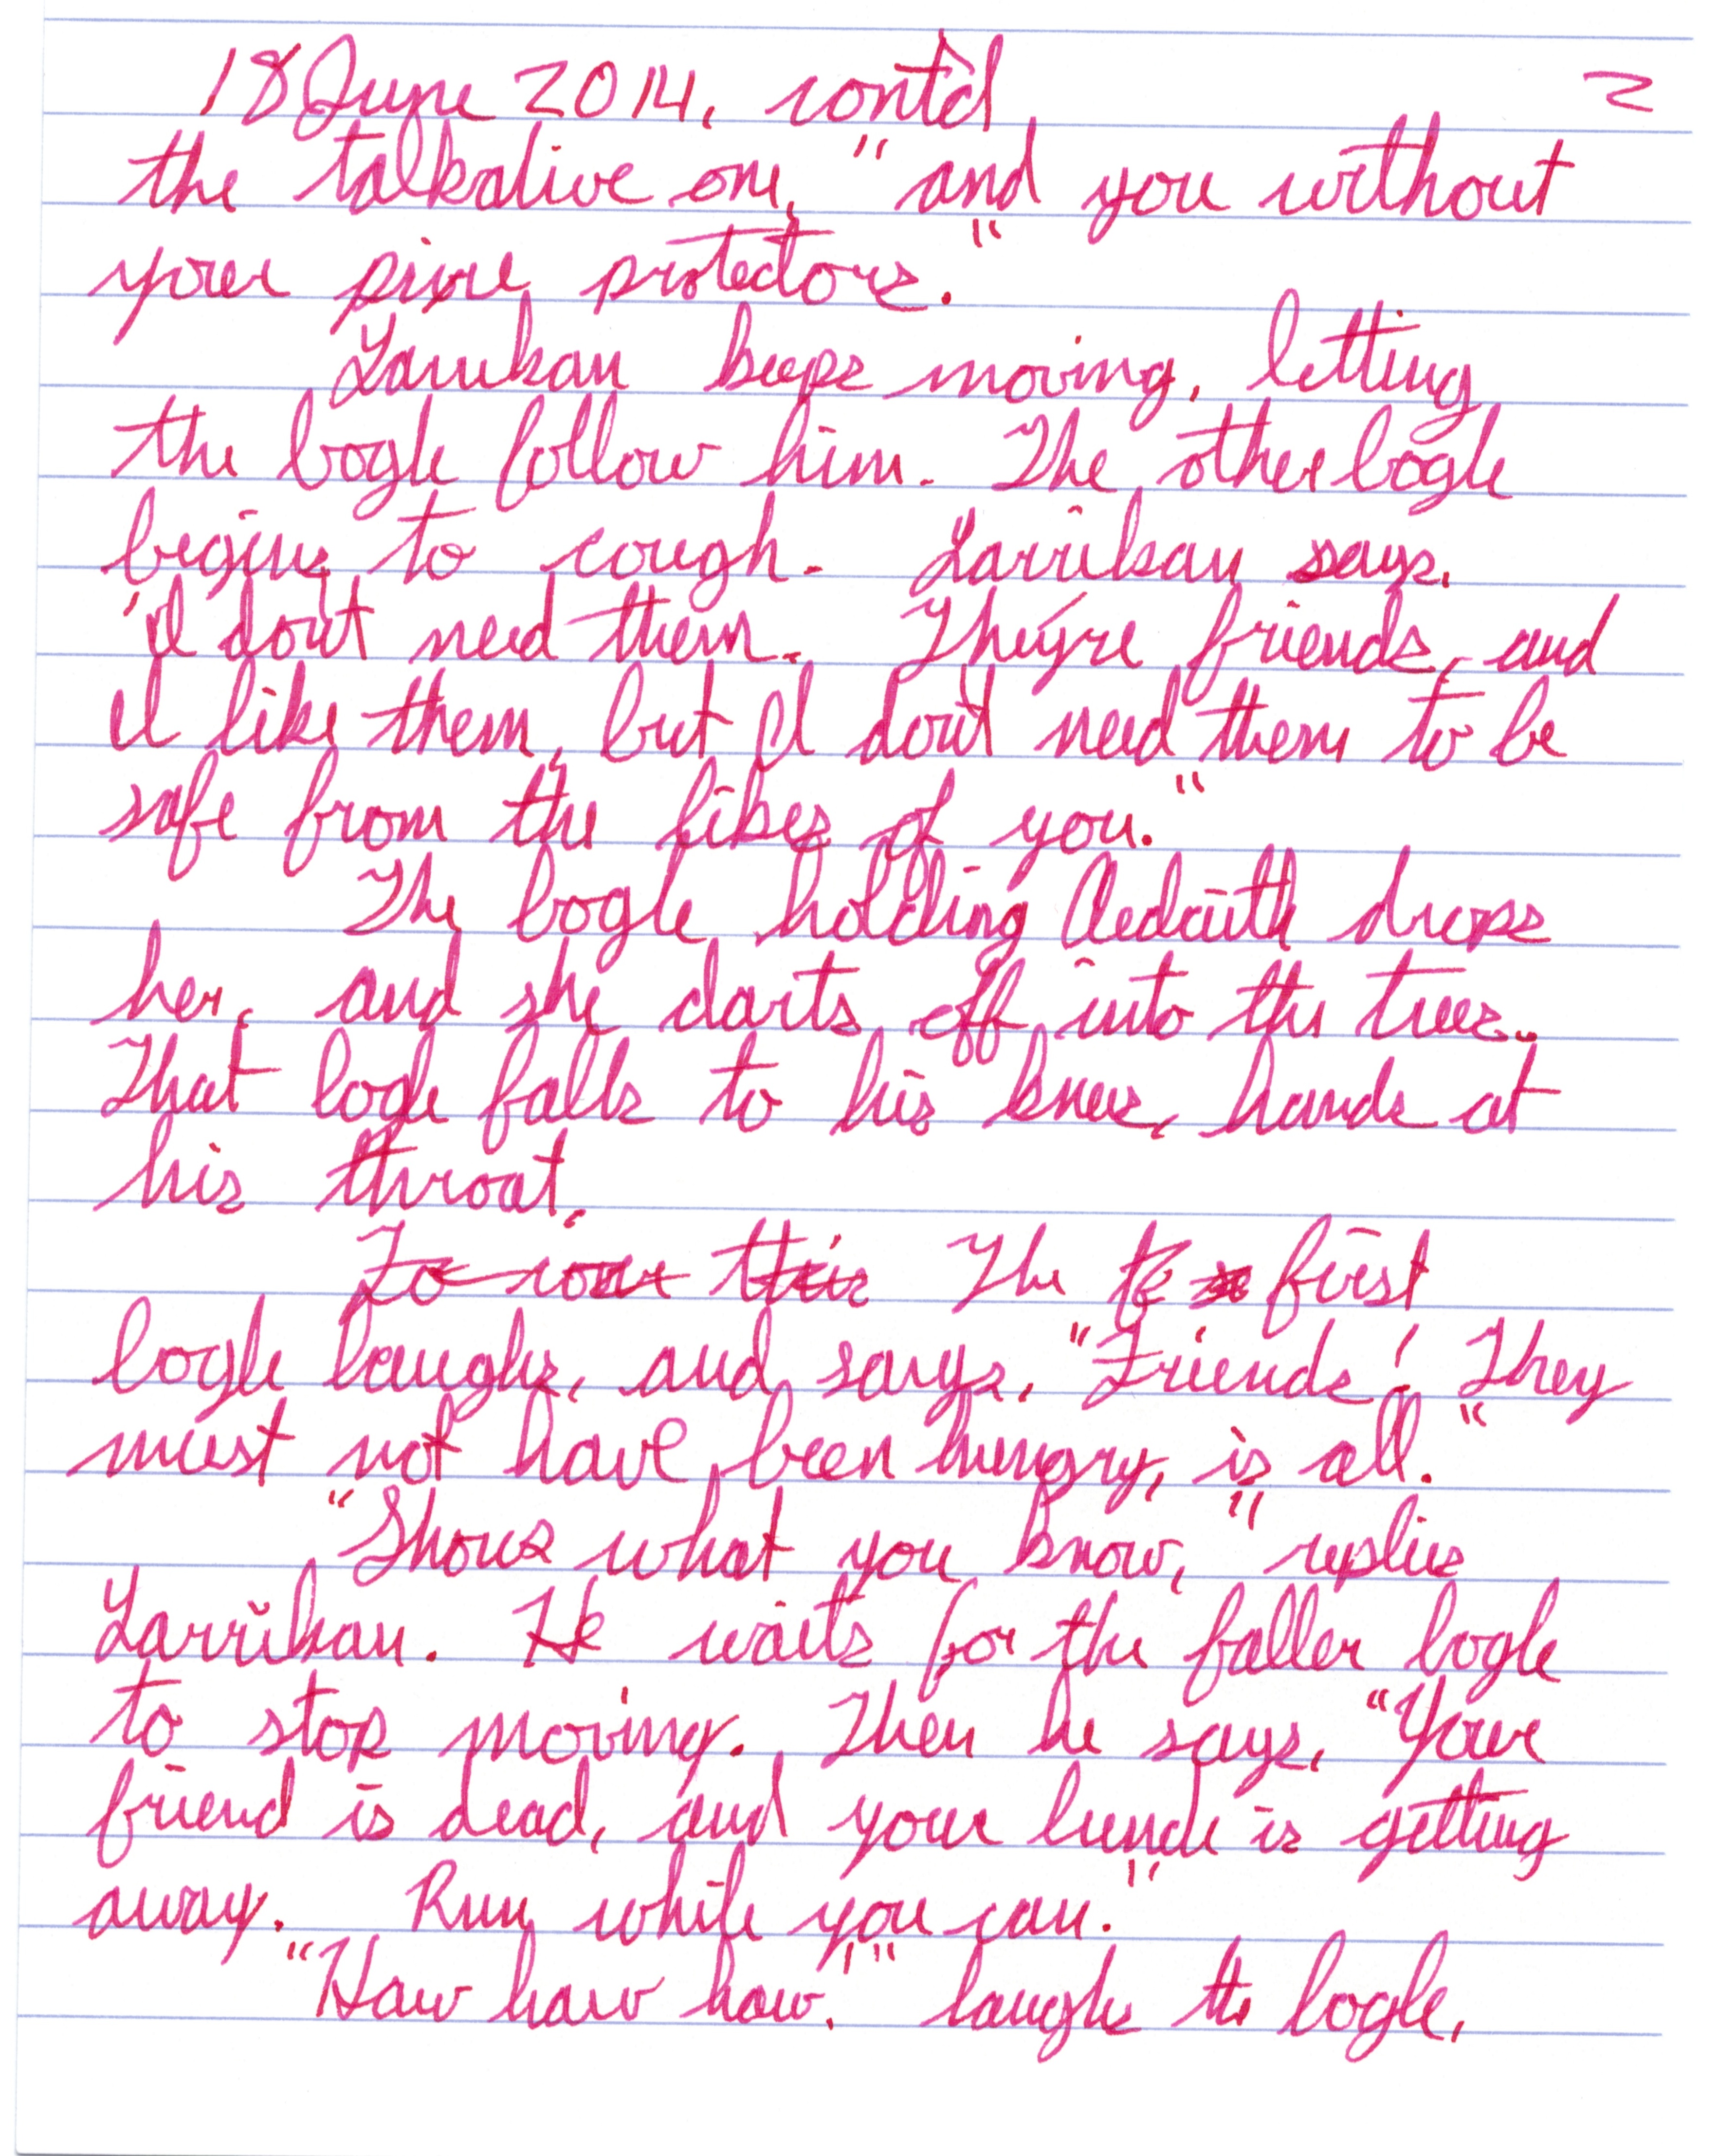 18 June 2014, cont'd 2
the talkative one, "and you without
your pixie protectors."
Larrikan keeps moving, letting
the bogle follow him. The other bogle
begins to cough. Larrikan says,
"I don't need them. They're friends, and
I like them, but I don't need them to be
safe from the likes of you."
The bogle holding Aedaith drops
her, and she darts off into the trees.
That bogle falls to his knees, hands at
his throat.
To cover this The first
bogle laughs, and says, "Friends! They
must not have been hungry, is all."
"Shows what you know," replies
Larrikan. He waits for the fallen bogle
to stop moving. Then he says, "Your
friend is dead, and your lunch is getting
away. Run while you can."
"Haw haw haw!" laughs the bogle,